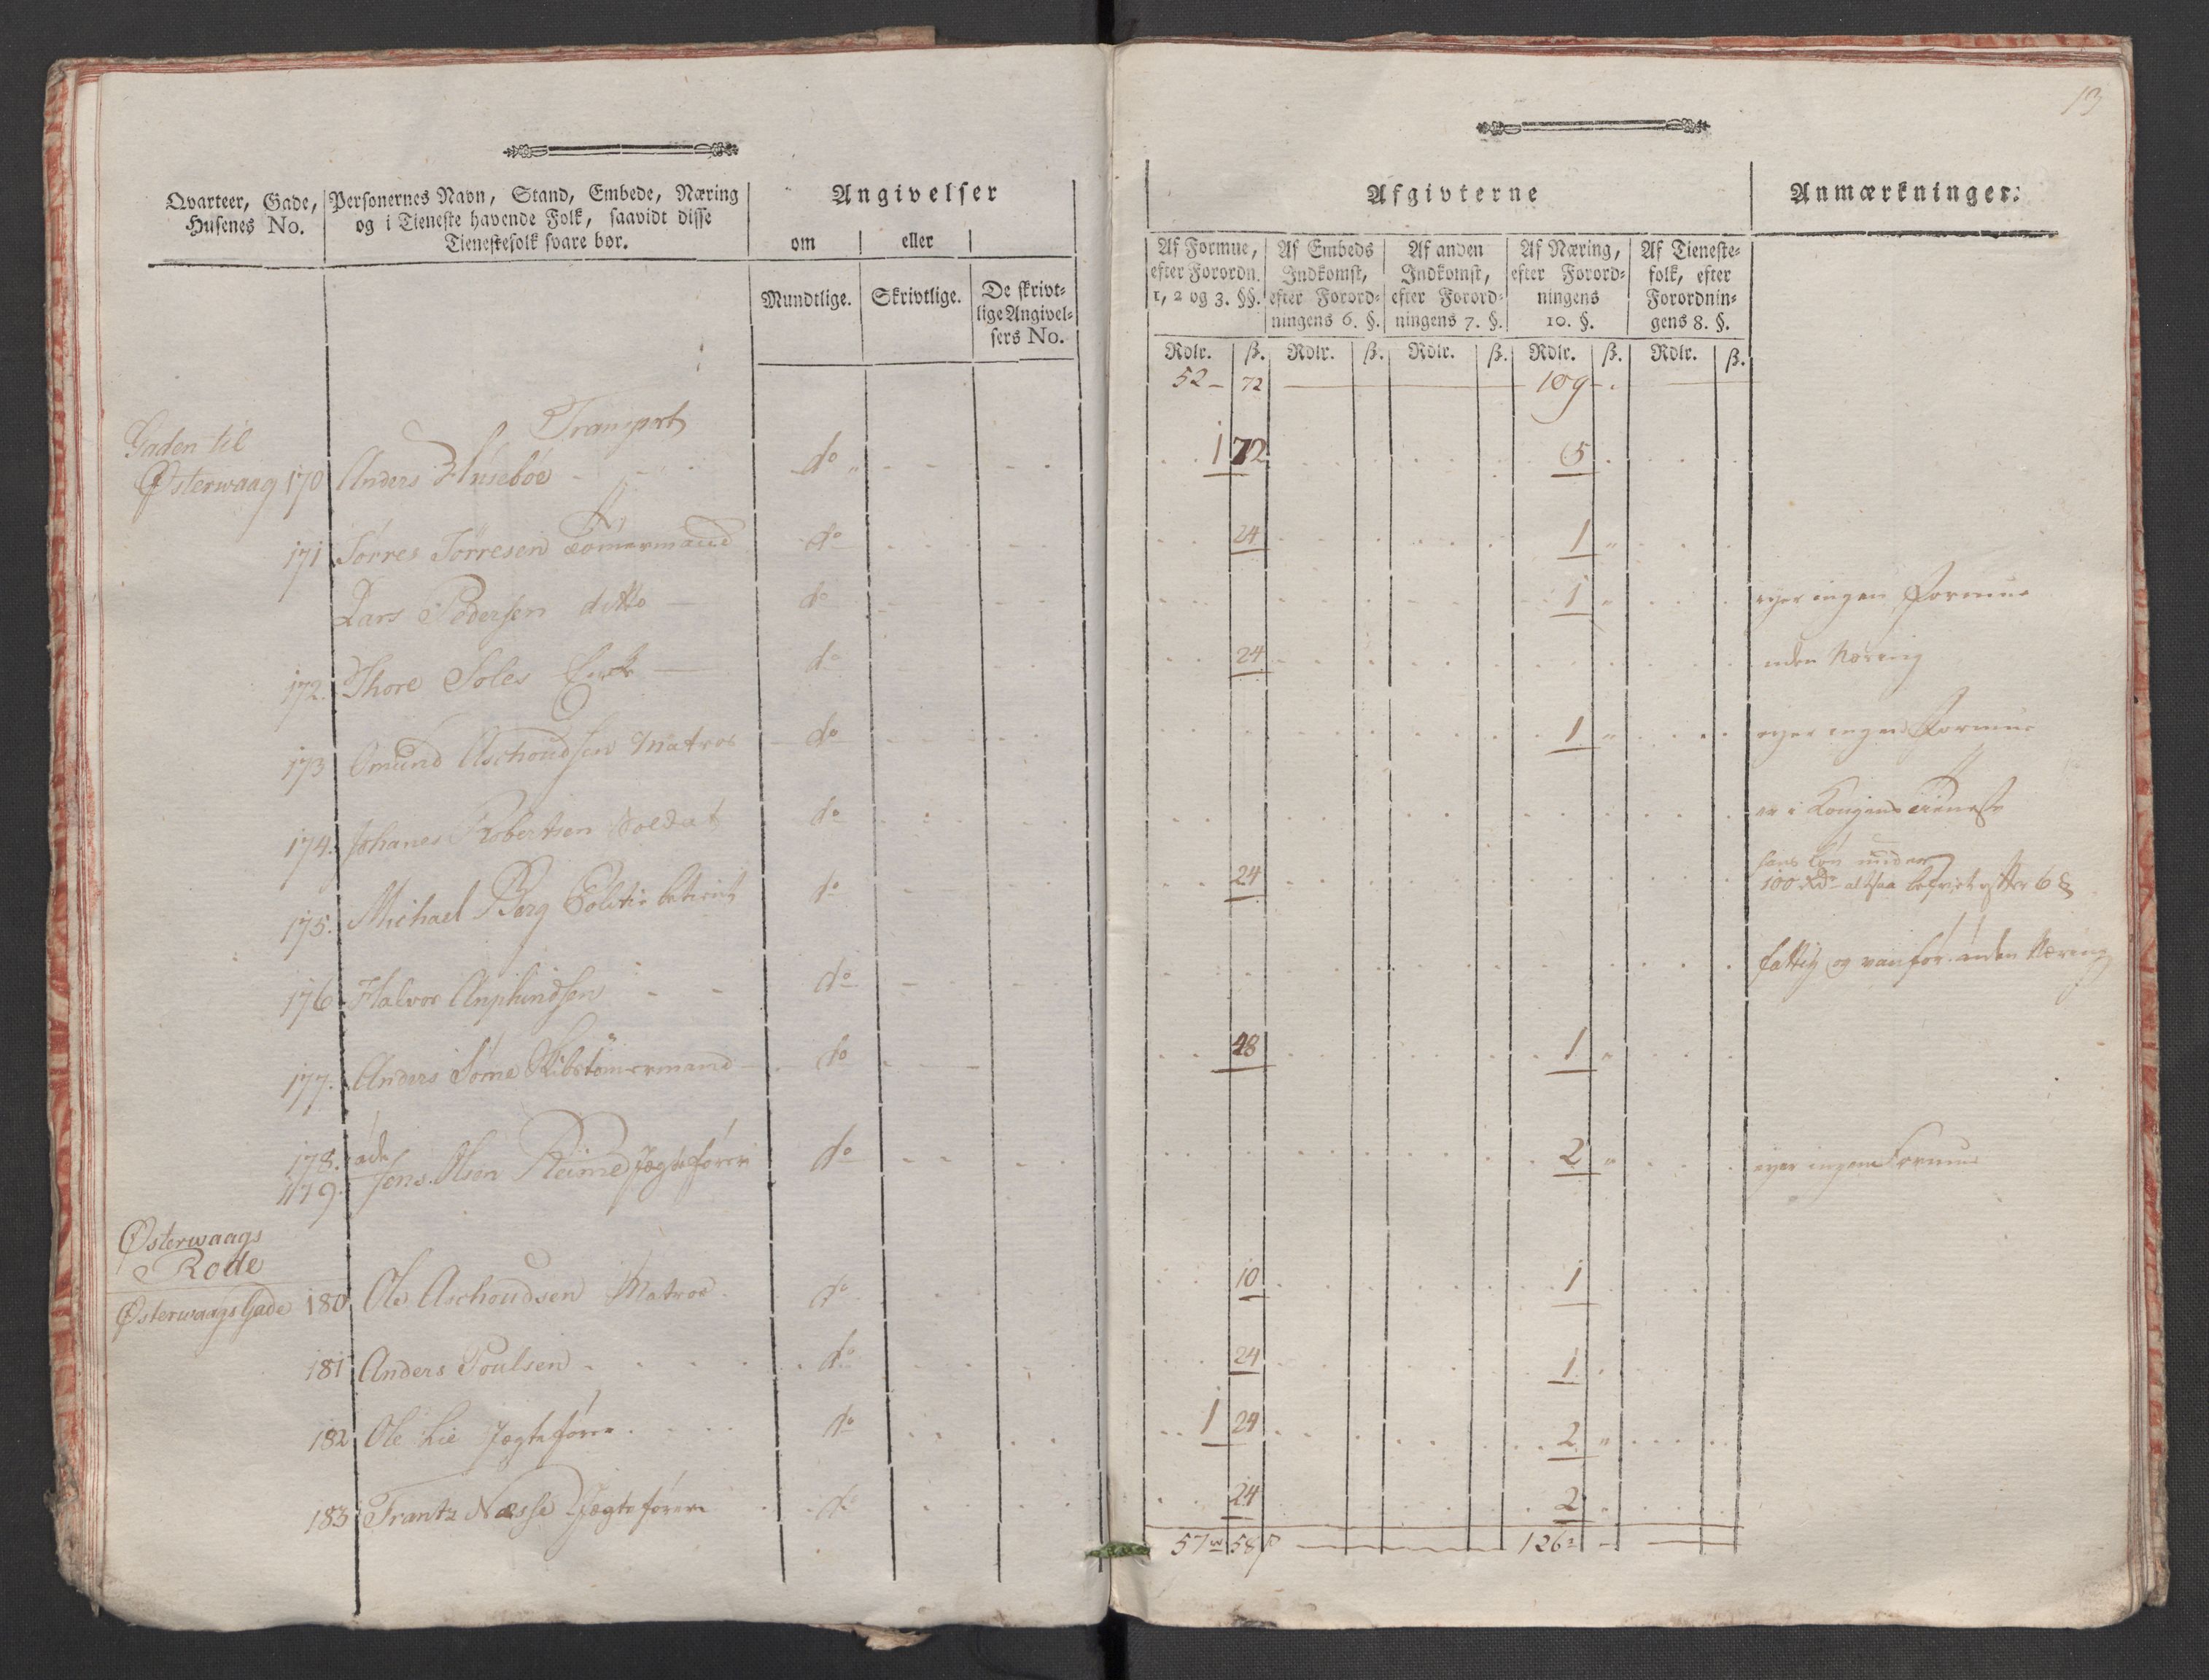 13
Qvarteer, Gade, Husenes No.
Personernes Navn, Stand, Embede, Næring og i Tieneste havende Folk, saavidt disse Tienestefolk svare bør.
Angivelser
om eller
Mundtlige. Skrivtlige. De skrivtlige Angivelsers No.
Afgivterne
Anmærkninger.
Af Formue, efter Forordn. 1, 2 og 3. §§.
Af Embeds Indkomst, efter Forordningens 6. §.
Af anden Indkomst, efter Forordningens 7. §.
Af Næring, efter Forordningens 10. §.
Af Tienestefolk, efter Forordningens 8. §.
Rdlr. ß. Rdlr. ß. Rdlr. ß. Rdlr. ß. Rdlr. ß.
Transport 52 72 109
Gaden til
Østerwaag 170 Anders Husebøe do 1 72 5
171 Torres Torresen Tømermand do 24 1
Lars Pedersen ditto do 1 eyer ingen Formue
172. Thore Soles Encke do 24 uden Næring
173 Omund Aschoudsen Matros do 1 eyer ingen Formue
174. Johanes Robertsen Soldat do er i Kongens Tieneste
175. Michael Berg Politie betient do 24 hans Løn under
100 Rdr altsaa befriet efter 6 §
176 Halvor Anphindsen do fattig og vanfør uden Næring
177. Anders Some Skibstømermand do 48 1
178. øde
179. Jens Olsen Reime Jægtefører do 2 eyer ingen Formue
Østerwaags
Rode
Østerwaags Gade 180 Ole Aschoudsen Matros do 10 1
181 Anders Poulsen do 24 1
182 Ole Lie Jægtefører do 1 24 2
183 Frantz Næsse Jægtefører do 24 2
57 58 126